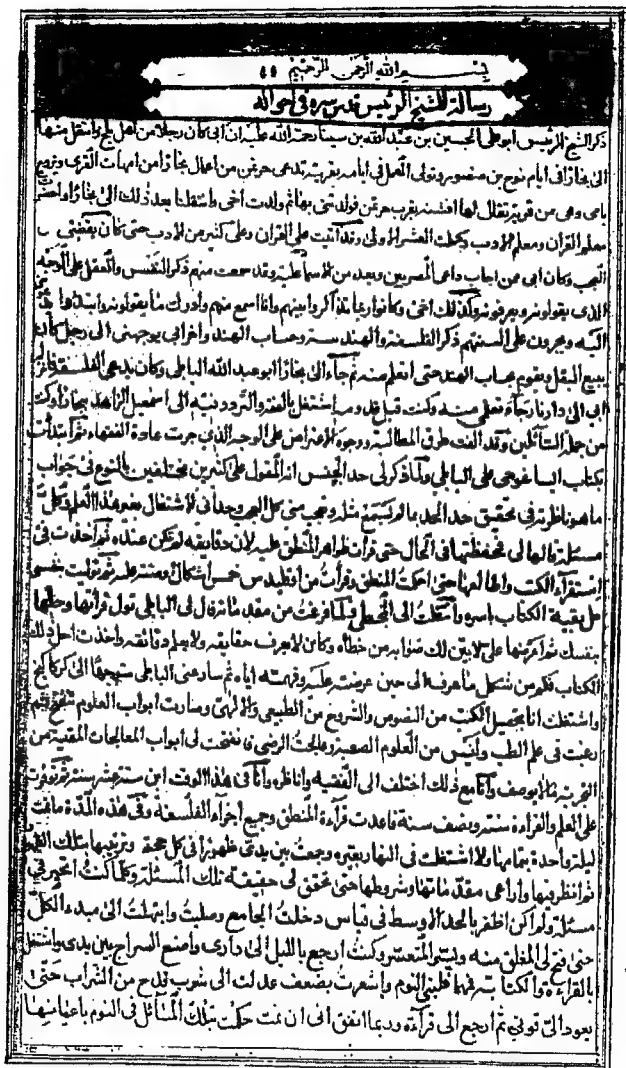 بسم الله الرحمن الرحيم
رسالة للشيخ الرئيس قدس سره في احواله
ذكر الشيخ الرئيس ابو علي الحسين بن عبد الله بن سينا رحمة الله عليه ان ابي كان رجلا من اهل بلخ وانتقل منها
الى بخارا في ايام نوح بن منصور وتولى العمل في ايامه بقرية تدعى خرميثن من اعمال بخارا من امهات القرى وتزوج
بامي وهي من قرية يقال لها افشنه بقرب خرميثن فولدتني بها ثم ولدت اخي وانتقلنا بعد ذلك الى بخارا واحضر
معلم القران ومعلم الادب وكملت العشر الاولى وقد اتيت على القران وعلى كثير من الادب حتى كان يقضى
العجب وكان ابي ممن اجاب داعي المصريين ويعد من الاسماعيليه وقد سمعت منهم ذكر النفس والعقل على الوجه
الذي يقولونه ويعرفونه وكذلك اخي وكانوا ربما تذاكروا بينهم وانا اسمع منهم وادرك ما يقولونه وابتدءوا
اليه ويجرون على السنتهم ذكر الفلسفة والهندسة وحساب الهند واخذ ابي يوجهني الى رجل كان
يبيع البقل بقوم بحساب الهند حتى اتعلم منه ثم جاء الى بخارا ابو عبد الله الناتلي وكان يدعى الفلسفة فانزله
ابي الى دارنا رجاء تعلمي منه وكنت قبل قدومه اشتغل بالفقه والتردد فيه الى اسمعيل الزاهد ببخارا وكنت
من جملة السائلين وقد الفت طرق المطالبة ووجوه الاعتراض على الوجه الذي جرت عادة الفقهاء ثم ابتدأت
بكتاب ايساغوجي على الناتلي ولما ذكر لى حد الجنس انه المقول على كثيرين مختلفين بالنوع في جواب
ما هو ناظرته في تحقيق حد الحد بما لم يسمع مثله وتعجب منى كل العجب وحذر ابي الاشتغال بغير هذا العلم وكل
مسئلة قالها لى تحفظتها في الحال حتى قرات ظواهر المنطق عليه لان دقايقه لم تكن عنده ثم اخذت فى
استقراء الكتب واطالعها حتى احكمت المنطق وقرأت من اوقليدس خمس اشكال او ستة عليه ثم توليت بنفسى
حل بقية الكتاب باسره وانتقلت الى المجسطى فلما فرغت من مقدماته قال لى الناتلي تول قراتها وحلها
بنفسك ثم اعرضها على لابين لك صوابه من خطاه وكان لا يعرف حقايقه ولا يعلم دقائقه واخذت احل ذلك
الكتاب فكم من شكل ما عرفه الى حين عرضته عليه وفهمته اياه ثم سار عنى الناتلي متوجها الى كركانج
واشتغلت انا بتحصيل الكتب من النصوص والشروح من الطبيعى والالهى وصارت ابواب العلوم تنفتح ثم
رغبت فى علم الطب وليس من العلوم الصعبة وعالجت المرضى فانفتحت لى ابواب المعالجات المقتبسة من
التجربة مالا يوصف وانا مع ذلك اختلف الى الفقيه واناظره وانا فى هذا الوقت ابن ستة عشر سنة ثم توفرت
على العلم والقراءة سنة ونصف سنة فاعدت قراءة المنطق وجميع اجزاء الفلسفة وفى هذه المدة ما نمت
ليلة واحدة بتمامها ولا اشتغلت فى النهار بغيره وجمعت بين يدى ظهورا فى كل حجة وترتيبها
ثم انظر فيها واراعى مقدماتها وشروطها حتى تحقق لى حقيقة تلك المسئلة وكلما كنت اتحير فى
مسئلة ولم اكن اظفر بالحد الاوسط فى قياس دخلت الجامع وصليت وابتهلت الى مبدء الكل
حتى فتح لى المغلق منه ويسر المتعسر وكنت ارجع بالليل الى دارى واضع السراج بين يدى واشتغل
بالقراءة والكتابة فمهما غلبنى النوم واشعرت بضعف عدلت الى شرب قدح من الشراب حتى
يعود الى قوتى ثم ارجع الى قراءة وربما اتفق انى ان نمت حكمت تلك المسائل فى النوم باعيانها